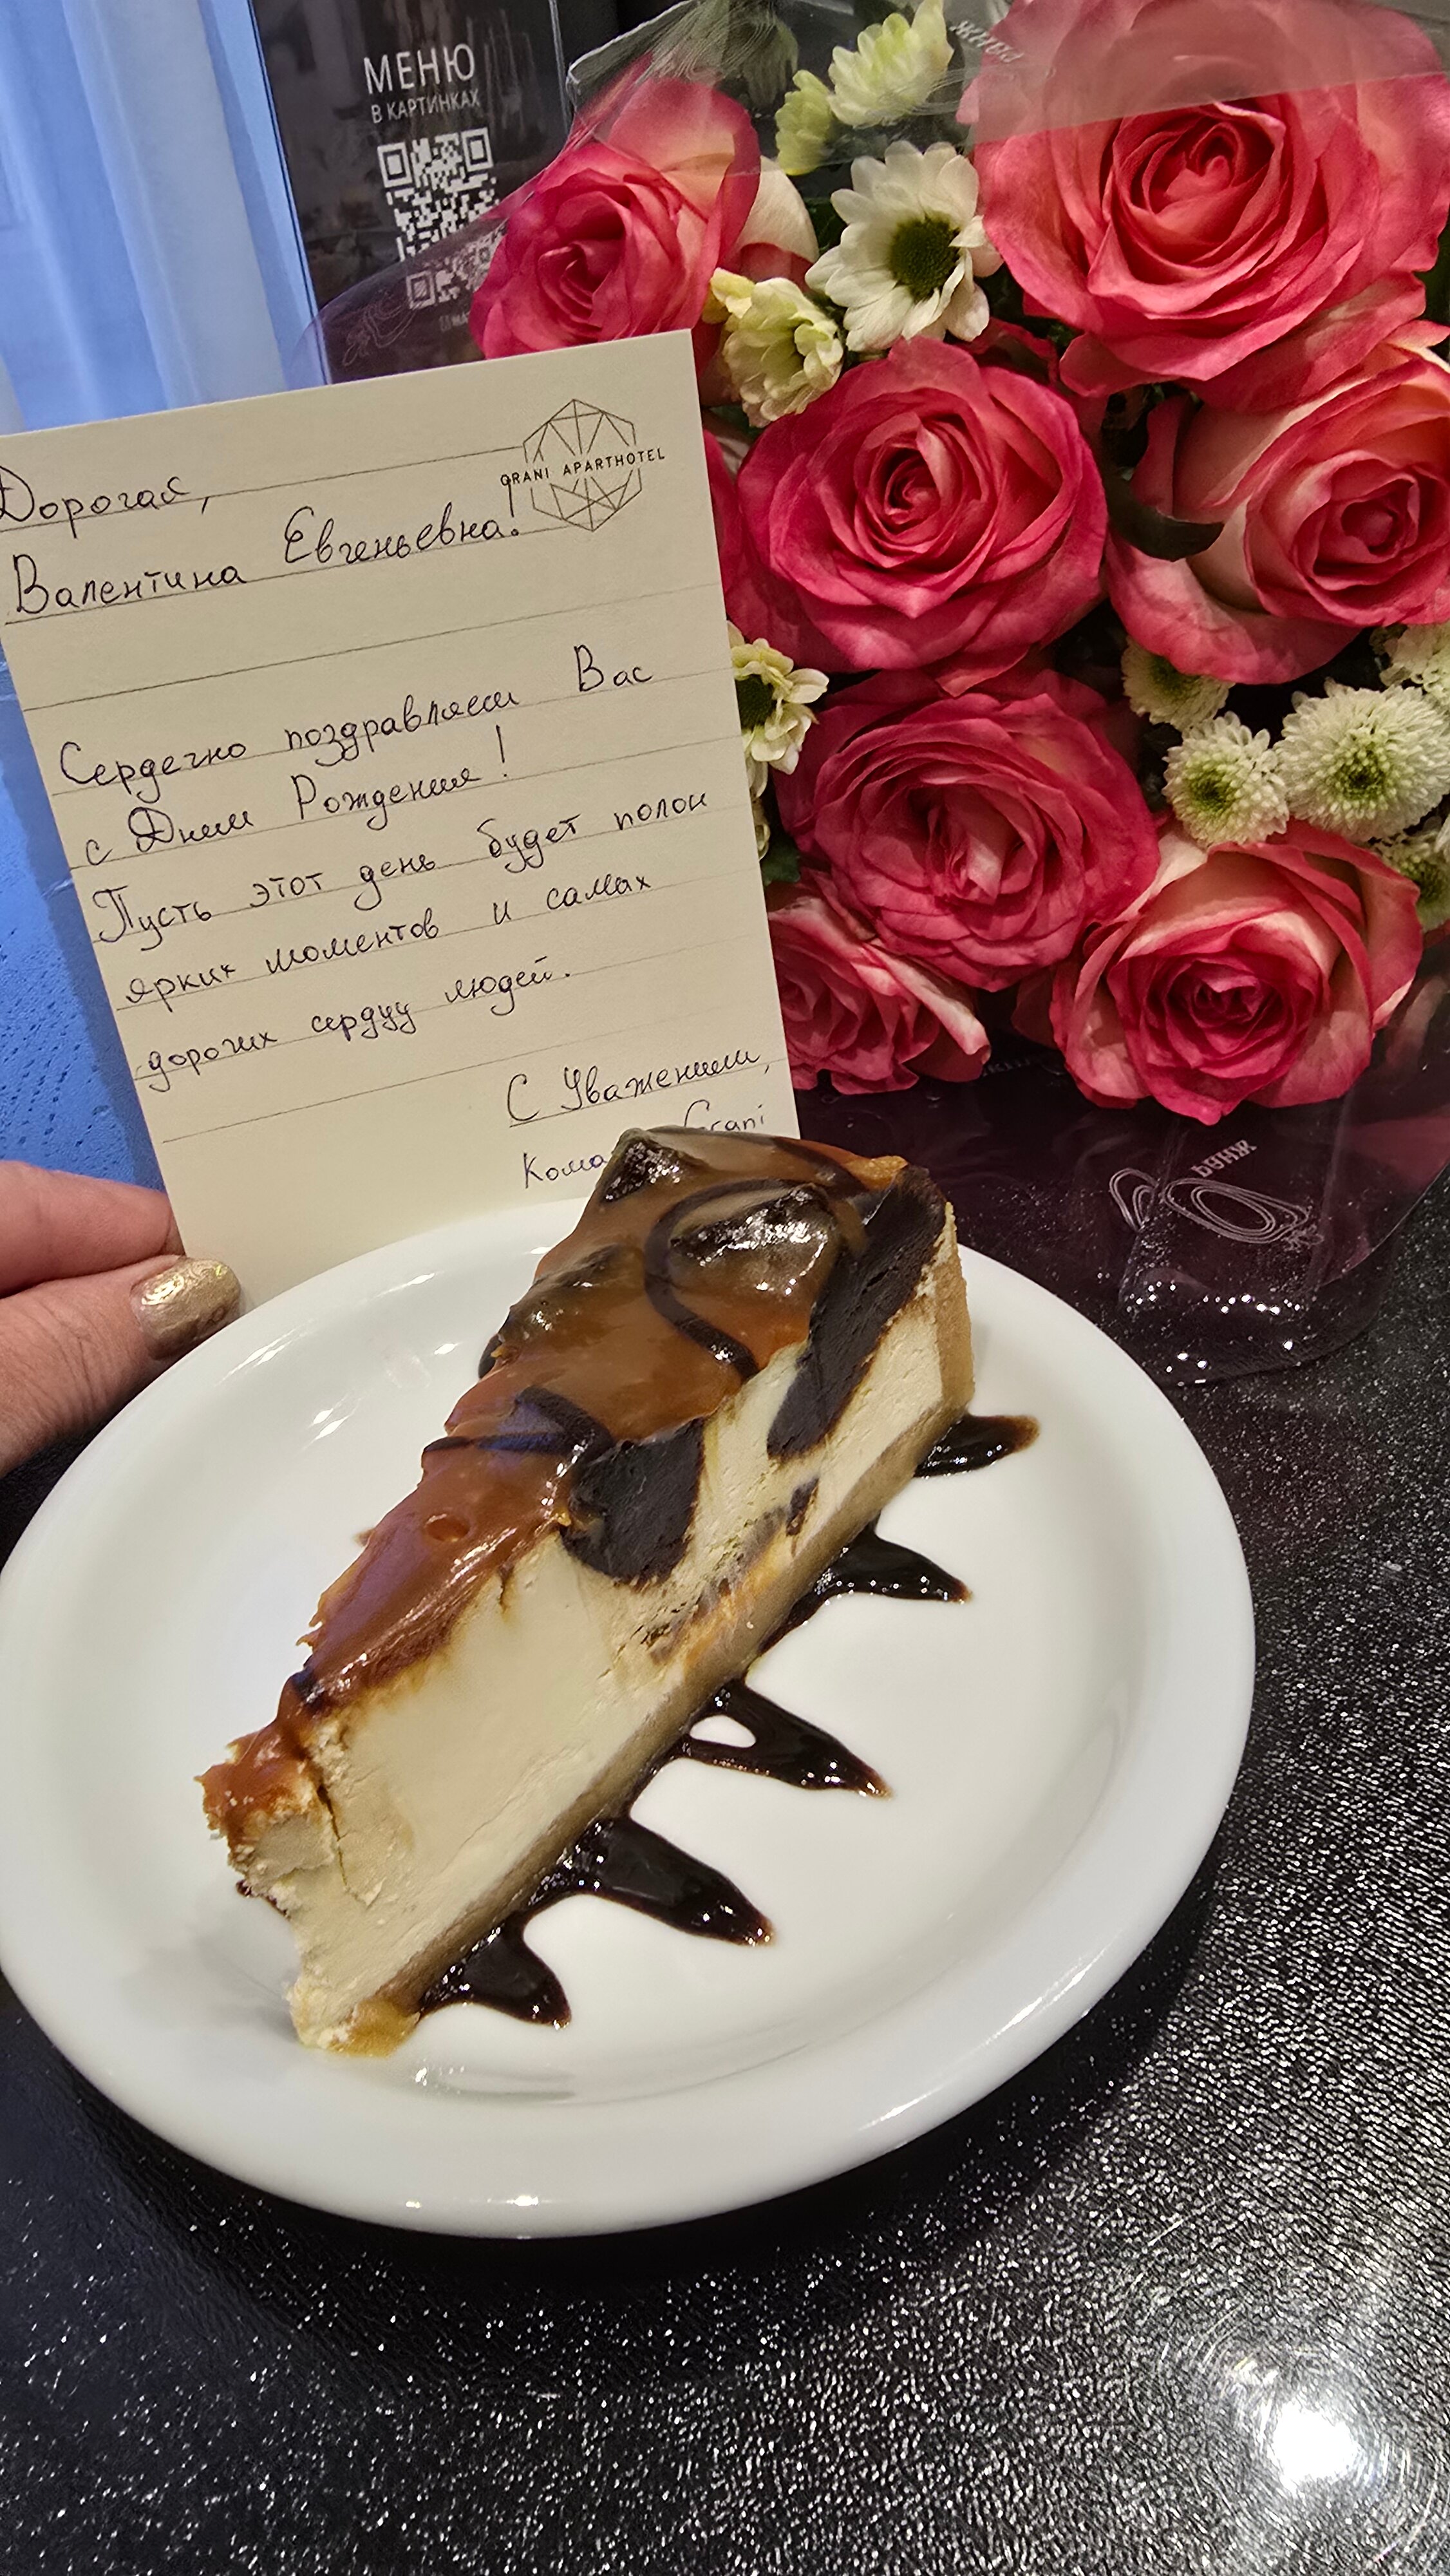 МЕНЮ
В КАРТИНКАХ
GRANI APARTHOTEL
Дорогая,
Валентина Евгеньевна!
Сердечно поздравляем Вас
с Днем Рождения!
Пусть этот день будет полон
ярких моментов и самых
дорогих сердцу людей.
С Уважением,
Grani